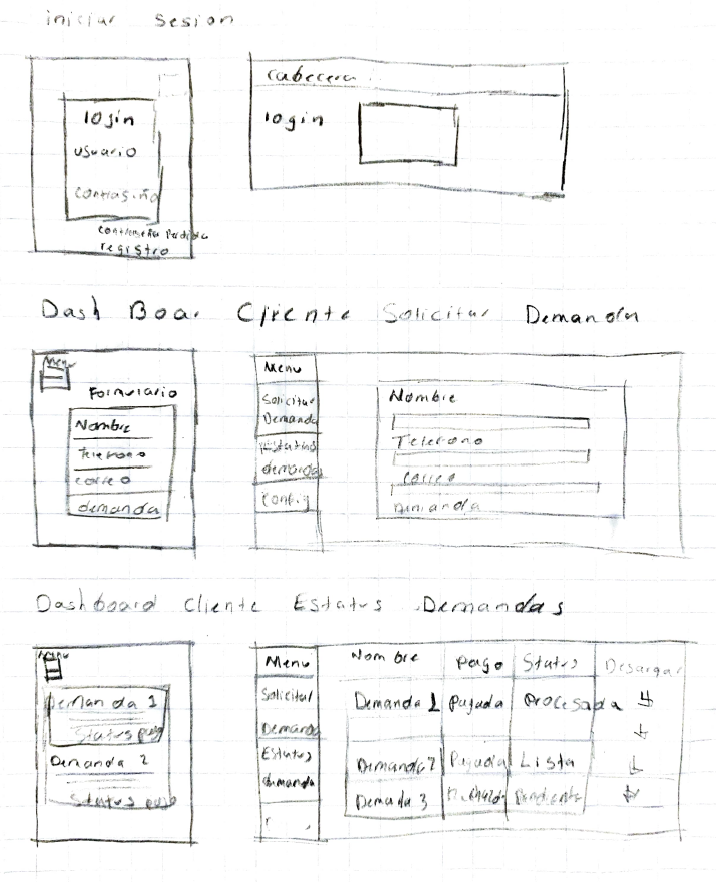 iniciar sesion
login
usuario
contraseña
contraseña perdida
registro
cabecera
login
Dash Boar Cliente Solicitar Demanda
Menu
Formulario
Nombre
telefono
correo
demanda
Menu
Solicitar
Demanda
Estatus
demandas
Config
Nombre
Telefono
correo
Demanda
Dashboard cliente Estatus Demandas
Menu
Demanda 1
Status pago
Demanda 2
Status pago
Menu
Solicitar
Demanda
Estatus
demanda
Nombre Pago Status Descargar
Demanda 1 Pagada Procesada
Demanda 2 Pagada Lista
Demada 3 Pendiente